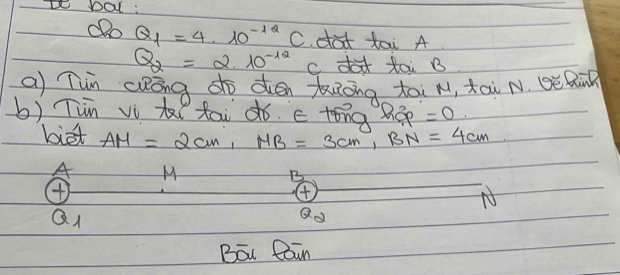 Đề bài:
Cho Q1 = 4.10⁻¹² C. đặt tại A
Q2 = 2.10⁻¹² C đặt tại B
a) Tìm cường độ điện trường tại M, tại N. Vẽ hình
b) Tìm vị trí tại đó E tổng hợp = 0.
biết AM = 2cm, MB = 3cm, BN = 4cm
A M B
+ +
N
Q1 Q2
Bài làm